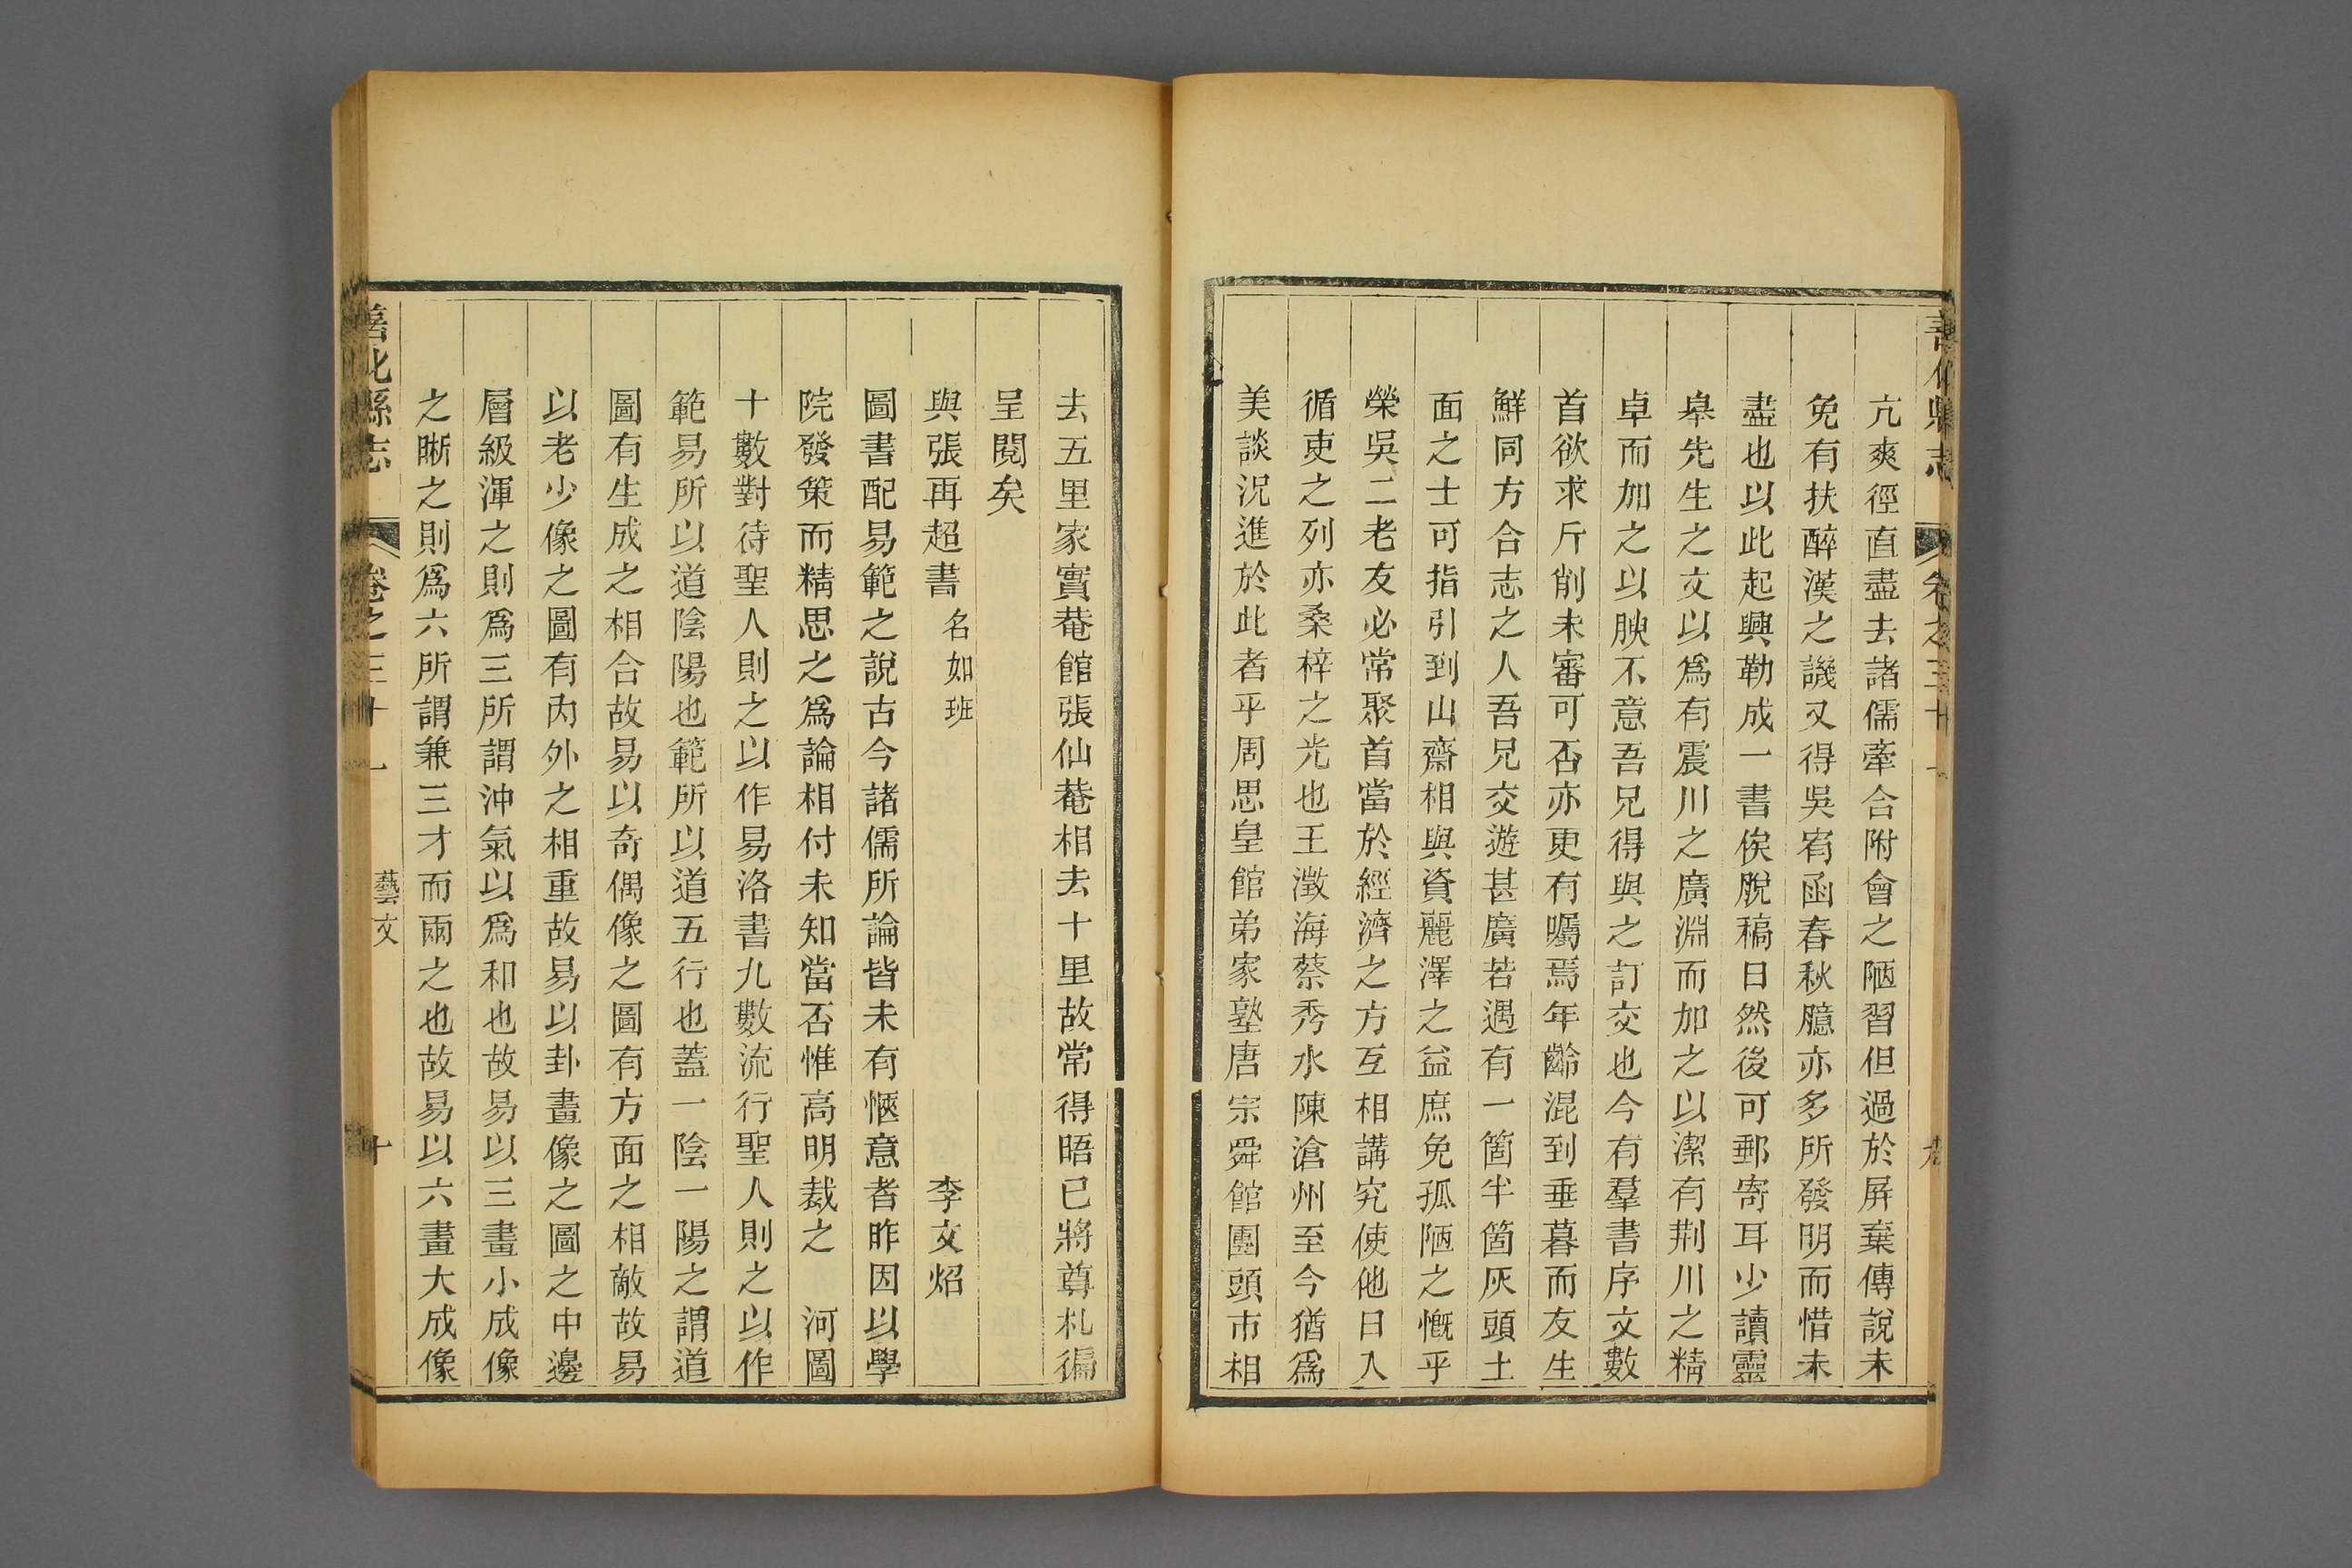 善化縣志
卷之三十一
九
亢爽徑直盡去諸儒牽合附會之陋習但過於屏棄傳說未
免有扶醉漢之譏又得吳宥函春秋臆亦多所發明而惜未
盡也以此起興勒成一書俟脫稿日然後可郵寄耳少讀靈
皋先生之文以爲有震川之廣淵而加之以潔有荆川之精
卓而加之以腴不意吾兄得與之訂交也今有羣書序文數
首欲求斤削未審可否亦更有囑焉年齡混到垂暮而友生
鮮同方合志之人吾兄交遊甚廣若遇有一箇半箇灰頭土
面之士可指引到山齋相與資麗澤之益庶免孤陋之慨乎
榮吳二老友必常聚首當於經濟之方互相講究使他日入
循吏之列亦桑梓之光也王澂海蔡秀水陳滄州至今猶爲
美談況進於此者乎周思皇館弟家塾唐宗舜館團頭市相
去五里家實菴館張仙菴相去十里故常得晤已將尊札徧
呈閱矣
與張再超書 名如班 李文炤
圖書配易範之說古今諸儒所論皆未有愜意者昨因以學
院發策而精思之爲論相付未知當否惟高明裁之 河圖
十數對待聖人則之以作易洛書九數流行聖人則之以作
範易所以道陰陽也範所以道五行也蓋一陰一陽之謂道
圖有生成之相合故易以奇偶像之圖有方面之相敵故易
以老少像之圖有內外之相重故易以卦畫像之圖之中邊
層級渾之則爲三所謂沖氣以爲和也故易以三畫小成像
之晰之則爲六所謂兼三才而兩之也故易以六畫大成像
善化縣志
卷之三十一
藝文
十